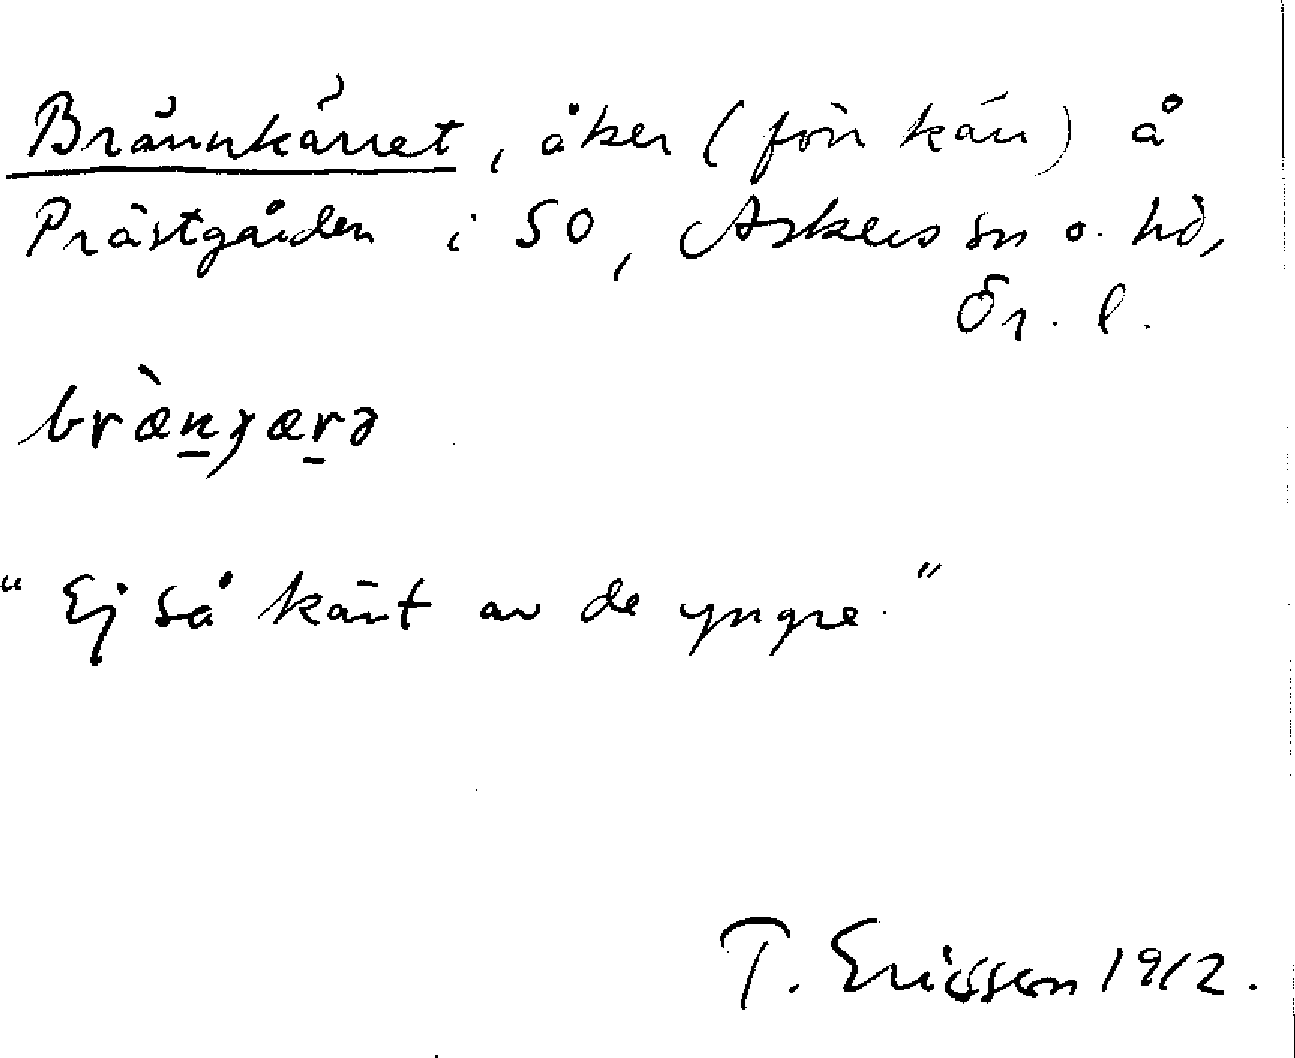 Brännkärret, åker (förr kärr) å
Prästgården i SO, Askers sn o. hd,
Ör. l.
bræ̀nɟærə
"Ej så känt av de yngre."
T. Ericsson 1912.